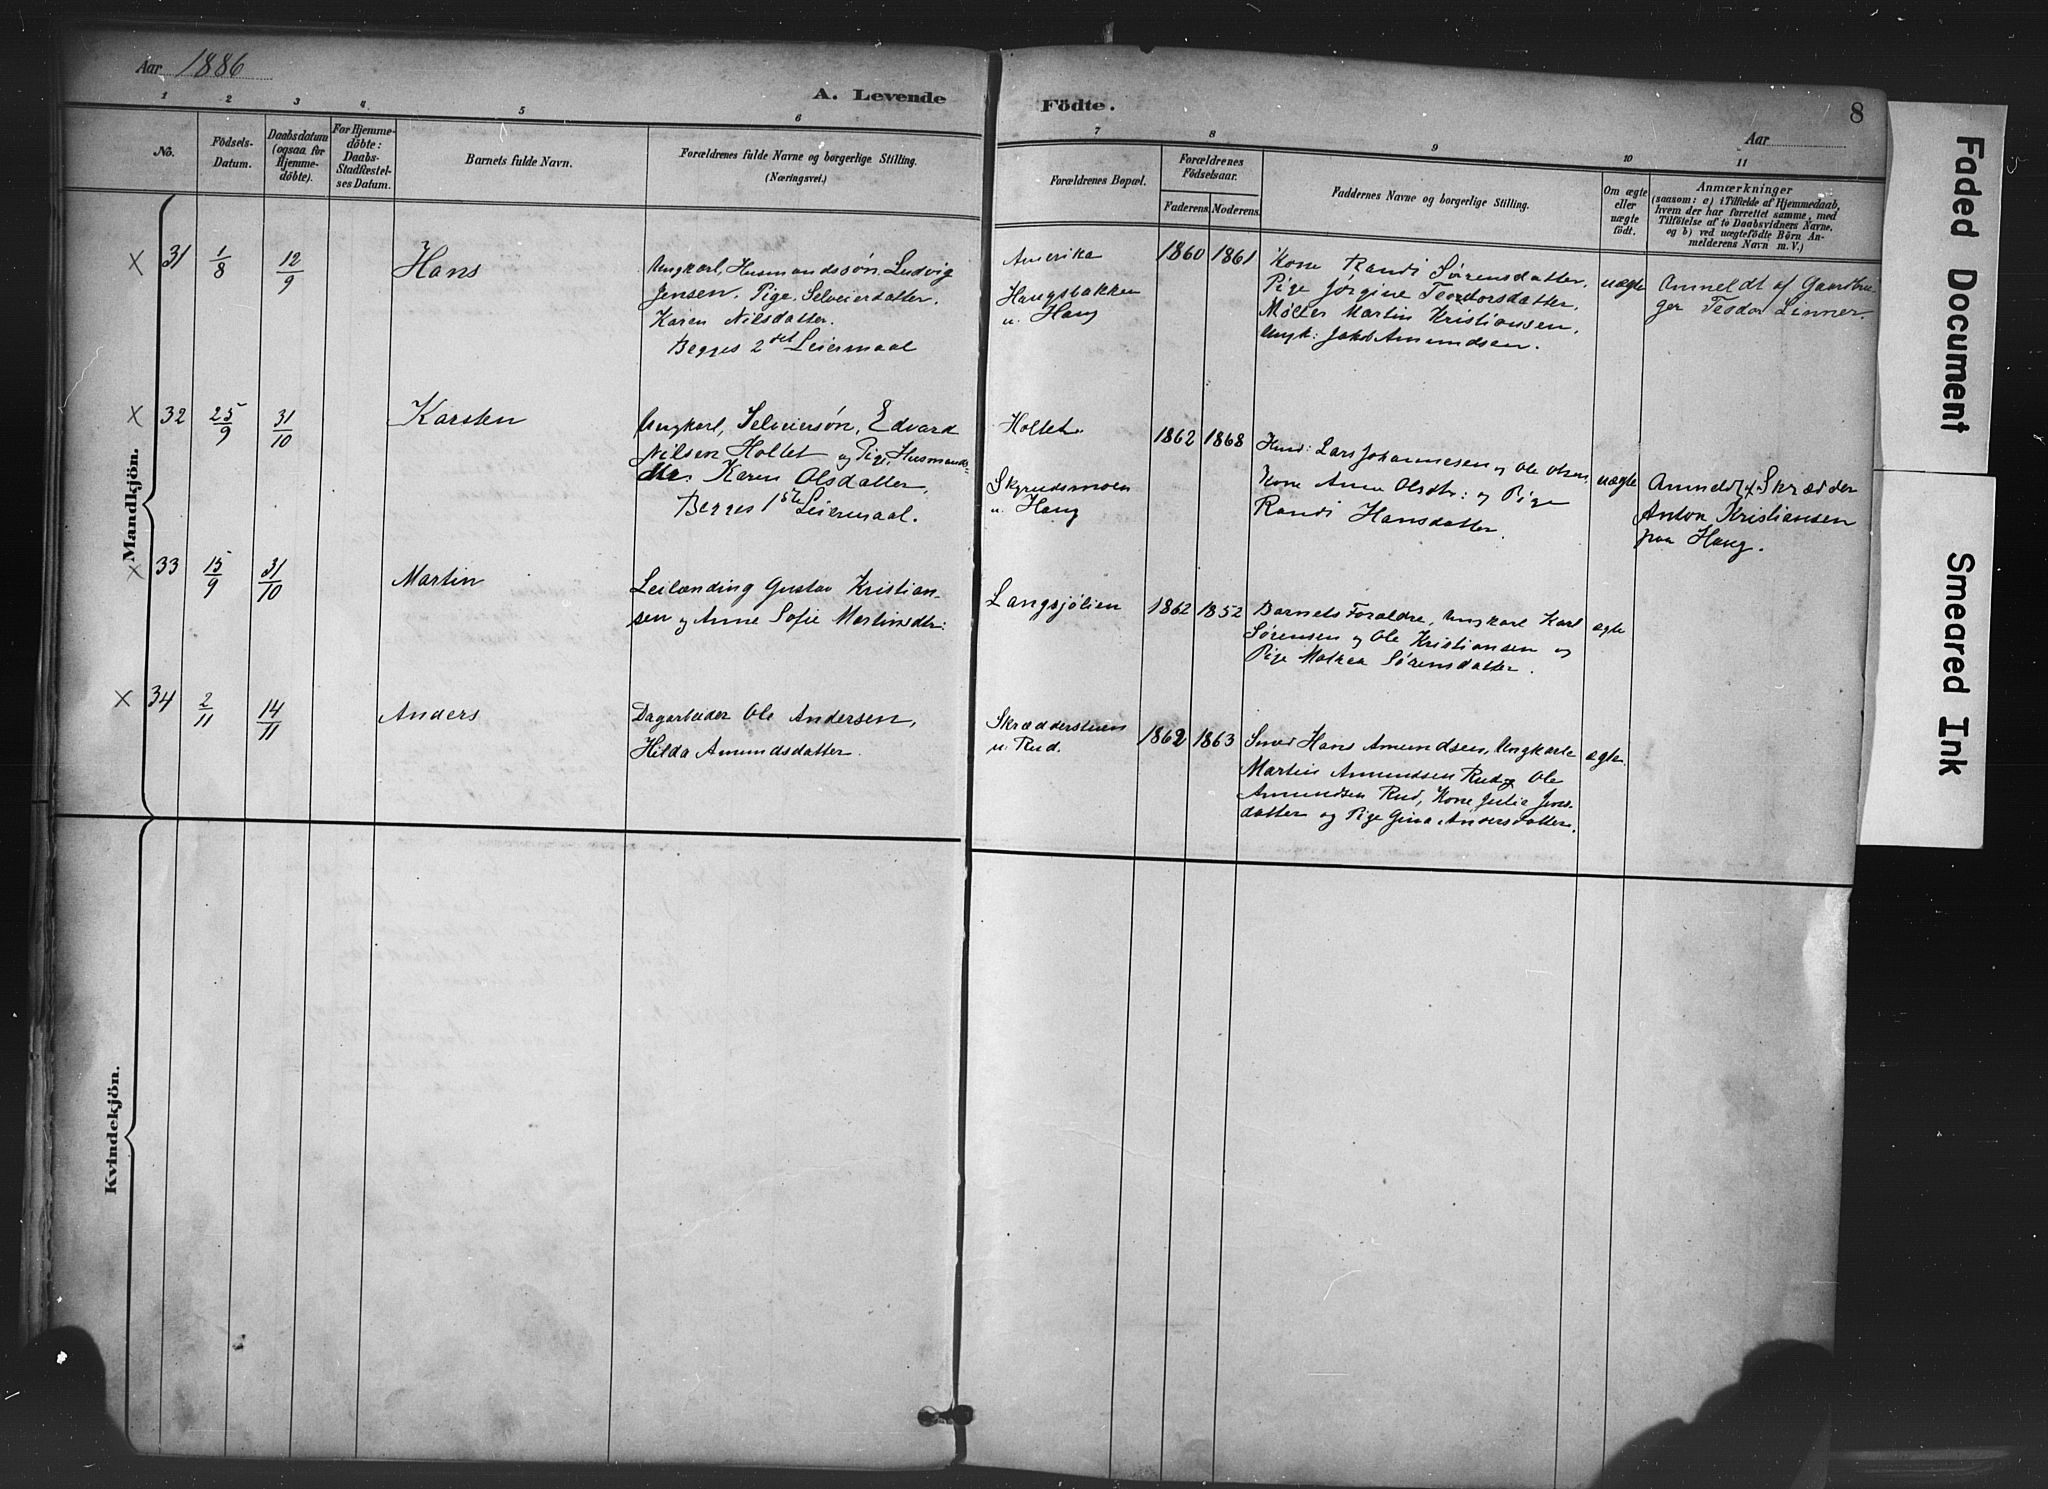 Aar 1886
A. Levende
Födte.
8
Aar
1 2 3 4 5 6
7 8 9 10 11
No.
Födsels-
Datum.
Daabsdatum
(ogsaa for
Hjemme-
döbte).
For Hjemme-
döbte:
Daabs-
Stadfæstel-
ses Datum.
Barnets fulde Navn.
Forældrenes fulde Navne og borgerlige Stilling.
(Næringsvei.)
Forældrenes Bopæl.
Forældrenes
Födselsaar.
Faderens. Moderens.
Faddernes Navne og borgerlige Stilling.
Om ægte
eller
uægte
födt.
Anmærkninger
(saasom: a) i Tilfælde af Hjemmedaab,
hvem der har forrettet samme, med
Tilföielse af to Daabsvidners Navne,
og b) ved uægtefödte Börn An-
melderens Navn m. V.)
Mandkjön.
X 31 1/8 12/9 Hans
Ungkarl, Husmandssøn Ludvig
Jensen. Pige, Selveierdatter
Karen Nilsdatter.
Begges 2det Leiermaal
Amerika
Haugsbakken
u. Haug
1860 1861
Kone Randi Sørensdatter,
Pige Jørgine Teodorsdatter,
Møller Martin Kristiansen,
Ungk: Jakob Amundsen.
uægte
Anmeldt af Gaardbru-
ger Teodor Linner.
X 32 25/9 31/10 Karsten
Ungkarl, Selveiersøn, Edvard
Nilsen Holtet og Pige, Husmands-
dtr. Karen Olsdatter,
Begges 1ste Leiermaal.
Holtet.
Skyrudsmoen
u. Haug
1862 1868
Husm: Lars Johannesen og Ole Olsen
Kone Anne Olsdtr: og Pige
Randi Hansdatter.
uægte
Anmeldt af Skrædder
Anton Kristiansen
paa Haug.
X 33 15/9 31/10 Martin
Leilænding Gustav Kristian-
sen og Anne Sofie Martinsdtr:
Langsjølien
1862 1852
Barnets Forældre, Ungkarl Karl
Sørensen og Ole Kristiansen og
Pige Matea Sørensdatter.
ægte
X 34 2/11 14/11 Anders
Dagarbeider Ole Andersen,
Hilda Amundsdatter.
Skrædderstuen
u. Rud.
1862 1863
Smed Hans Amundsen, Ungkarle
Martin Amundsen Rud og Ole
Amundsen Rud, Kone Julie Jens-
datter og Pige Gina Andersdatter.
ægte.
Kvindekjön.
Faded Document
Smeared Ink